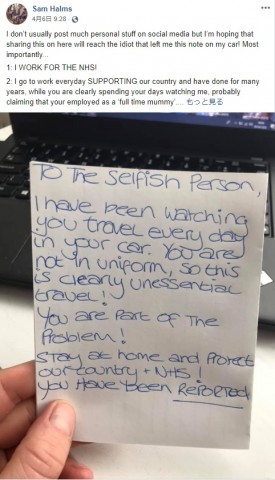 Sam Halms
4月6日 9:28
I don't usually post much personal stuff on social media but I'm hoping that
sharing this on here will reach the idiot that left me this note on my car! Most
importantly...
1: I WORK FOR THE NHS!
2: I go to work everyday SUPPORTING our country and have done for many
years, while you are clearly spending your days watching me, probably
claiming that your employed as a 'full time mummy'.... もっと見る
TO THE SELFISH PERSON,
I have been watching
you travel every day
in your car. You are
not in uniform, so this
is clearly unessential
travel!
You are part of the
Problem!
STAY at home and Protect
our country + NHS!
You HAVE BEEN REPORTED